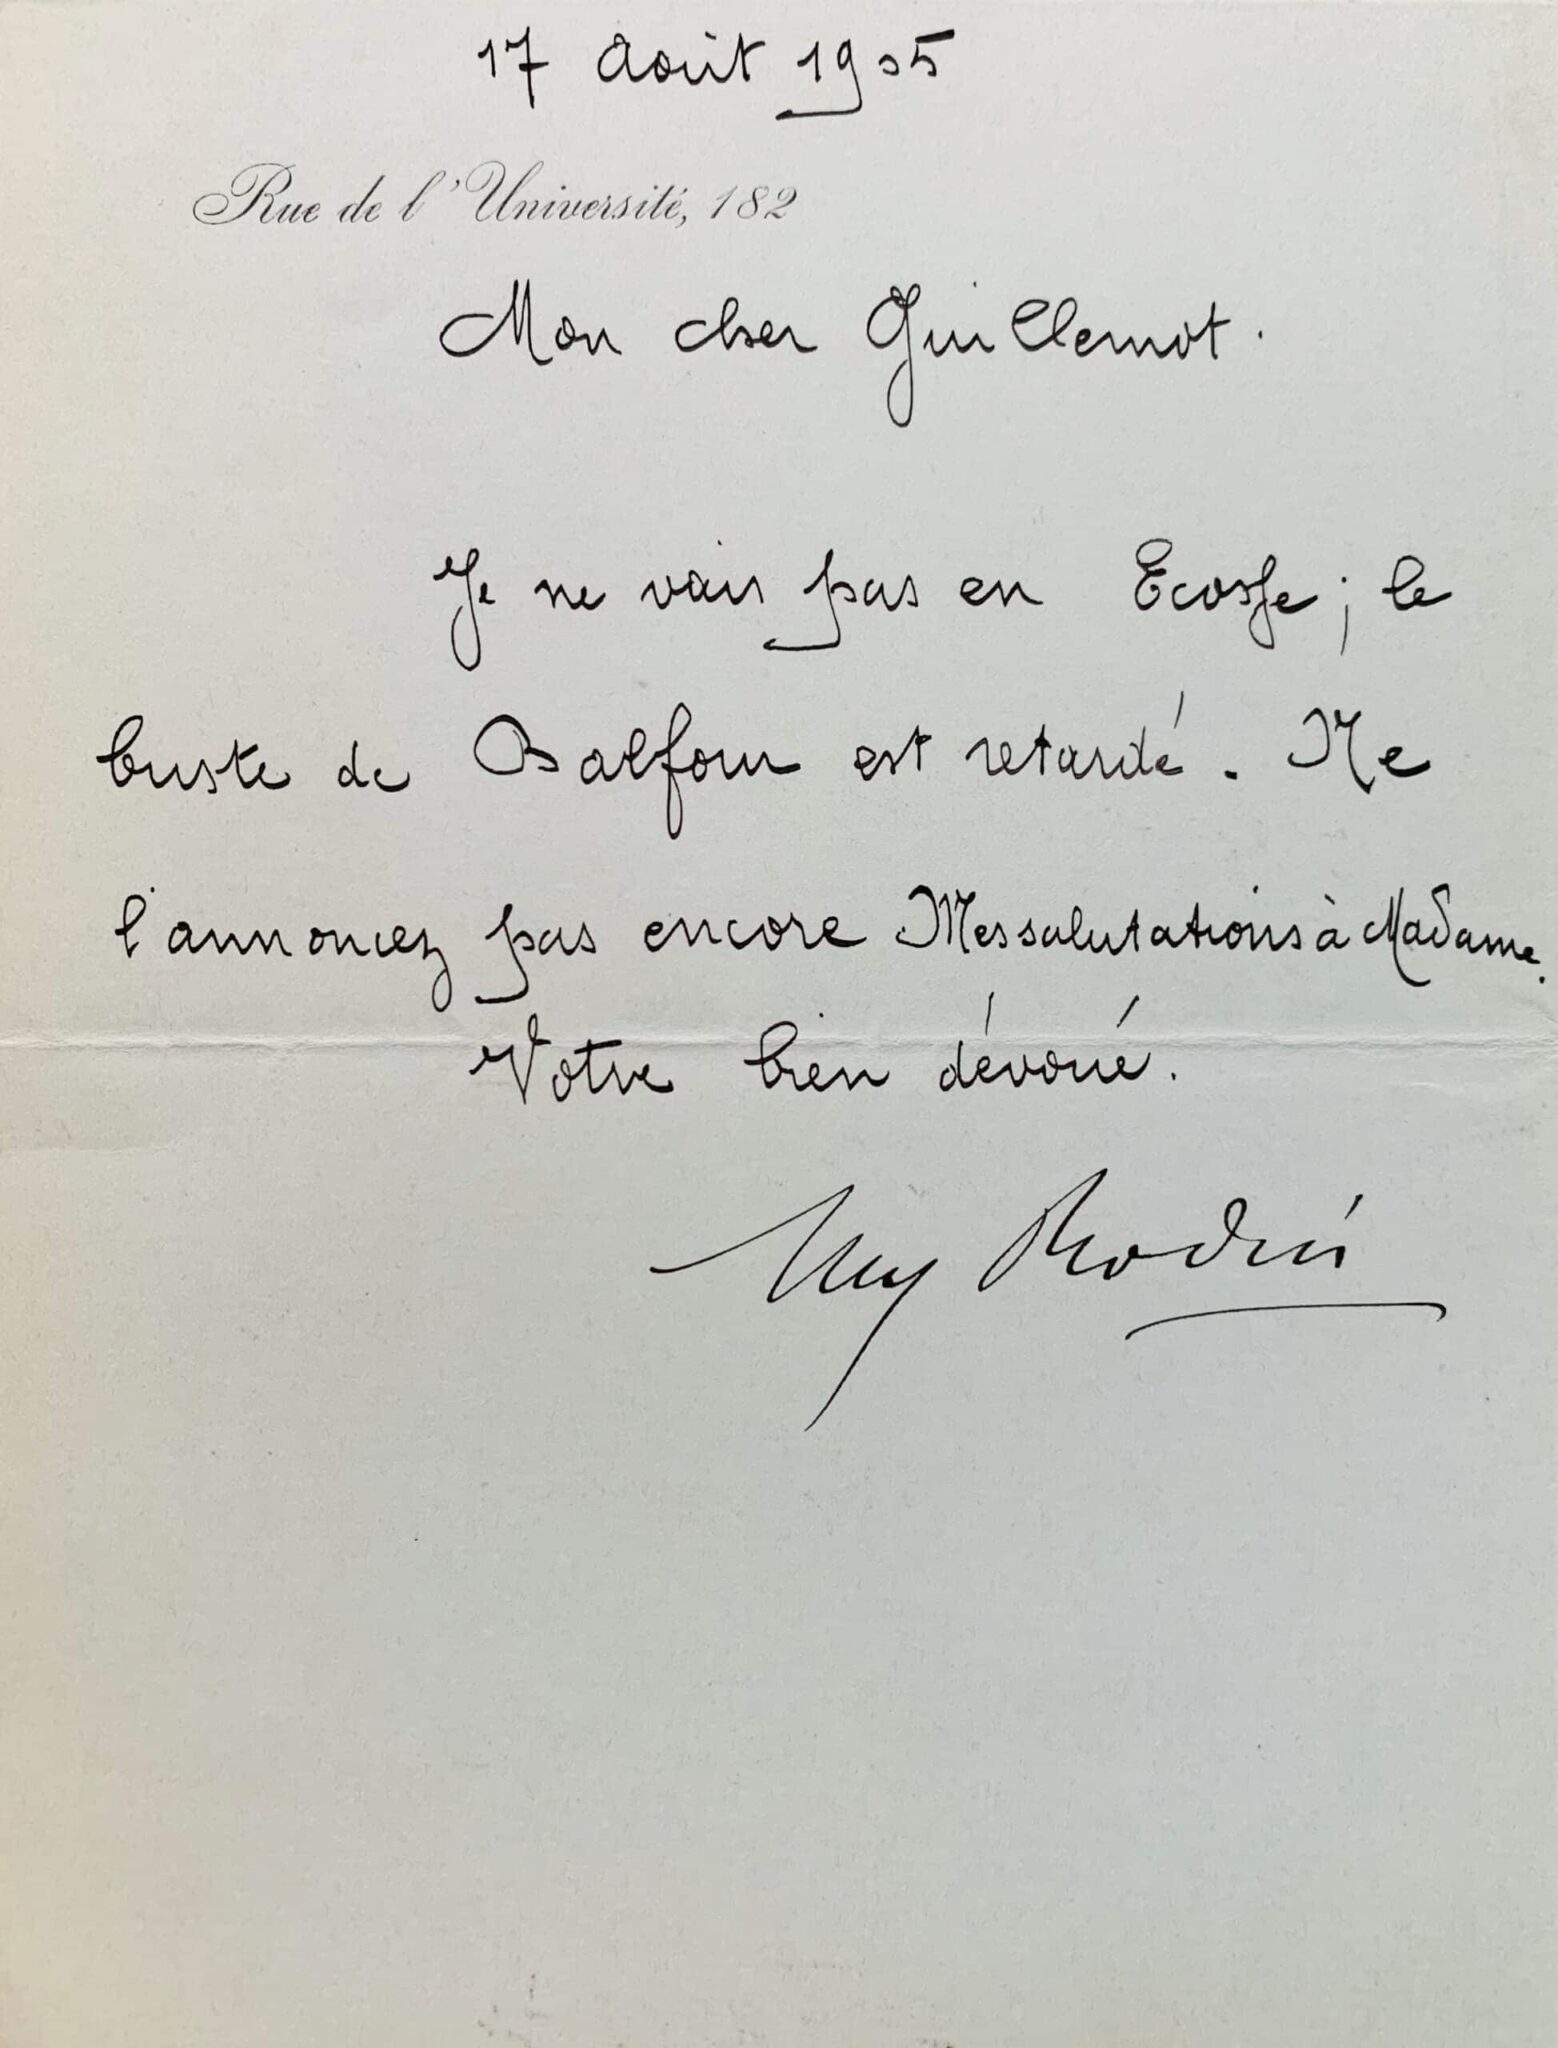 17 Août 1905
Rue de l'Université, 182
Mon cher Guillemot.
Je ne vais pas en Ecosse ; le
buste de Balfour est retardé. Ne
l'annoncez pas encore Mes salutations à Madame.
Votre bien dévoué.
Aug Rodin